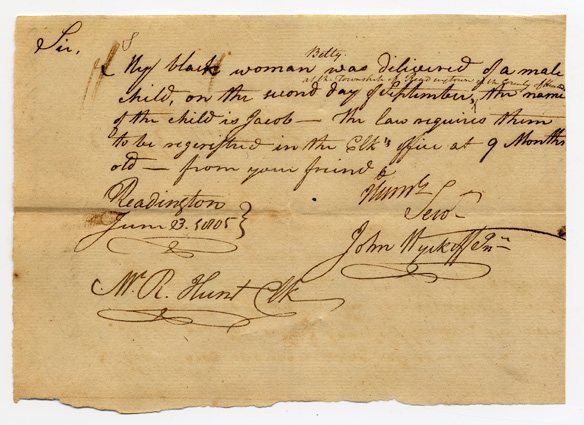 Sir,
Betty
My black woman was delivered of a male
of the Township of Readingtown in the County of
child, on the second day of September, the name
of the child is Jacob — the law requires them
to be registred in the Clk's office at 9 Months
old — from your friend &
Humb
Readington
Serv
June 23. 1805
John Wyckoff Jn
Mr R. Hunt Clk